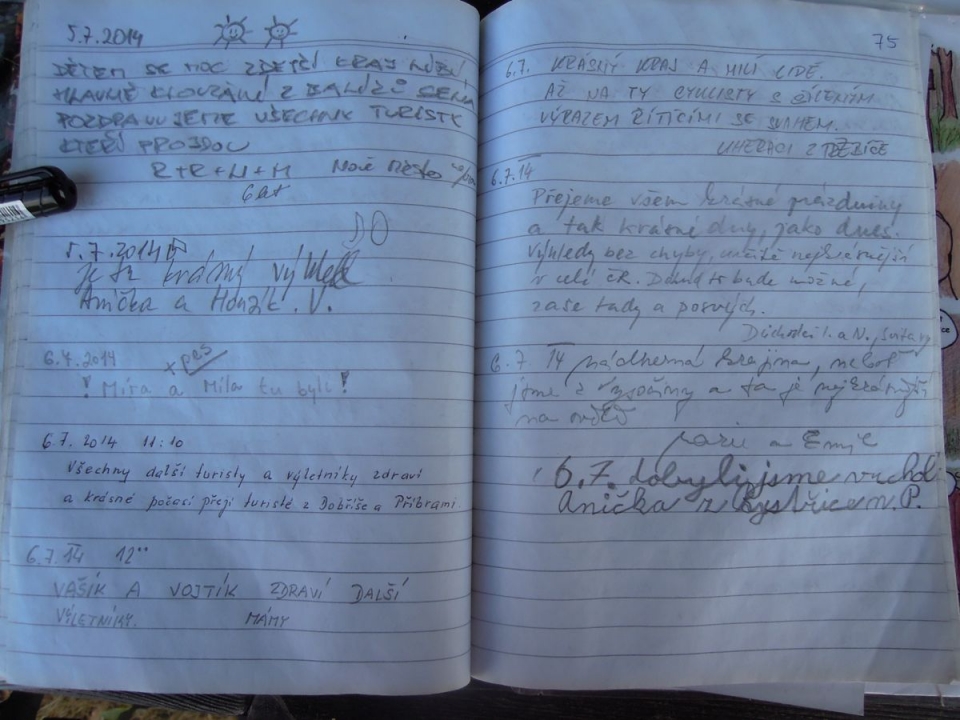 5.7.2014
DĚTEM SE MOC ZDEJŠÍ KRAJ
HLAVNĚ KLOUZÁNÍ Z BALÍKŮ SENA
POZDRAVUJEME VŠECHNY TURISTY
KTEŘÍ PROJDOU
R+R+N+M Nové Město
6 let
5.7.2014
je tu krásný výhled
Anička a Honzík. V.
6.7.2014 + pes
! Míra a Míla tu byli !
6.7. 2014 11:10
Všechny další turisty a výletníky zdraví
a krásné počasí přejí turisté z Dobříše a Příbrami
6.7.14 12°°
VAŠÍK A VOJTÍK ZDRAVÍ DALŠÍ
VÝLETNÍKY. MÁMY
75
6.7. KRÁSNÝ KRAJ A MILÍ LIDÉ.
AŽ NA TY CYKLISTY S ŠÍLENÝM
VÝRAZEM ŘÍTÍCÍMI SE SVAHEM.
Z TŘEBÍČE
6.7.14
Přejeme všem krásné prázdniny
a tak krásné dny, jako dnes.
Výhledy bez chyby, určitě nejkrásnější
v celé ČR. Dokud to bude možné,
zase tady a posvých.
Důchodci I. a N. Svitavy
6.7 14 nádherná krajina, neboť
jsme z Vysočiny a ta je nejkrásnější
na světě
a Emil
6.7. dobyli jsme vrchol
Anička z Bystřice n. P.